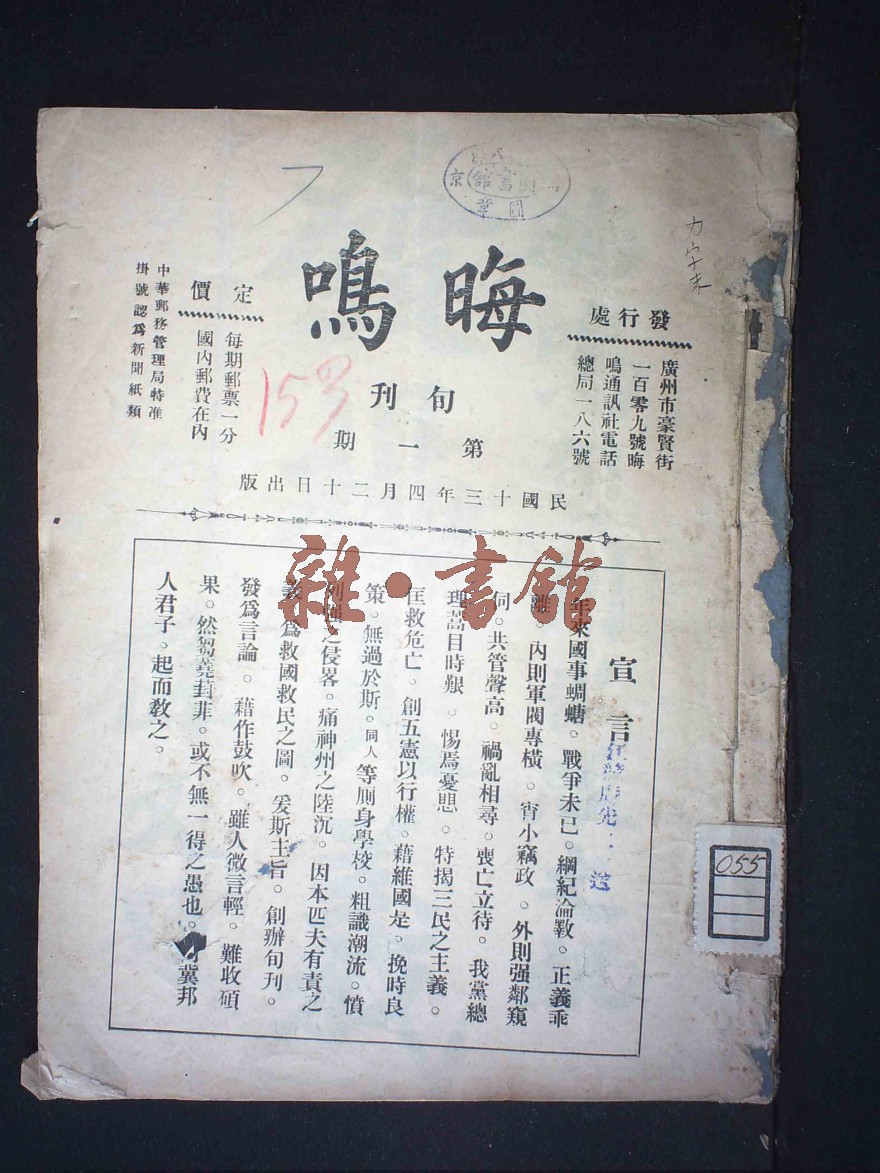 晦鳴
旬刊
第一期
民國十三年四月二十日出版
發行處
廣州市豪賢街
一百零九號晦
鳴通訊社電話
總局一八六號
定價
每期郵票一分
國內郵費在內
中華郵務管理局特准
掛號認爲新聞紙類
153
力字未
雜·書館
055
宣言
年來國事蜩螗。戰爭未已。綱紀淪斁。正義乖
離。內則軍閥專橫。宵小竊政。外則强鄰窺
伺。共管聲高。禍亂相尋。喪亡立待。我黨總
理蒿目時艱。惕焉憂思。特揭三民之主義。
匡救危亡。創五憲以行權。藉維國是。挽時良
策。無過於斯。同人等厠身學校。粗識潮流。憤
列强之侵畧。痛神州之陸沉。因本匹夫有責之
義。爲救國救民之圖。爰斯主旨。創辦旬刊。
發爲言論。藉作鼓吹。雖人微言輕。難收碩
果。然芻蕘葑菲。或不無一得之愚也。冀邦
人君子。起而敎之。